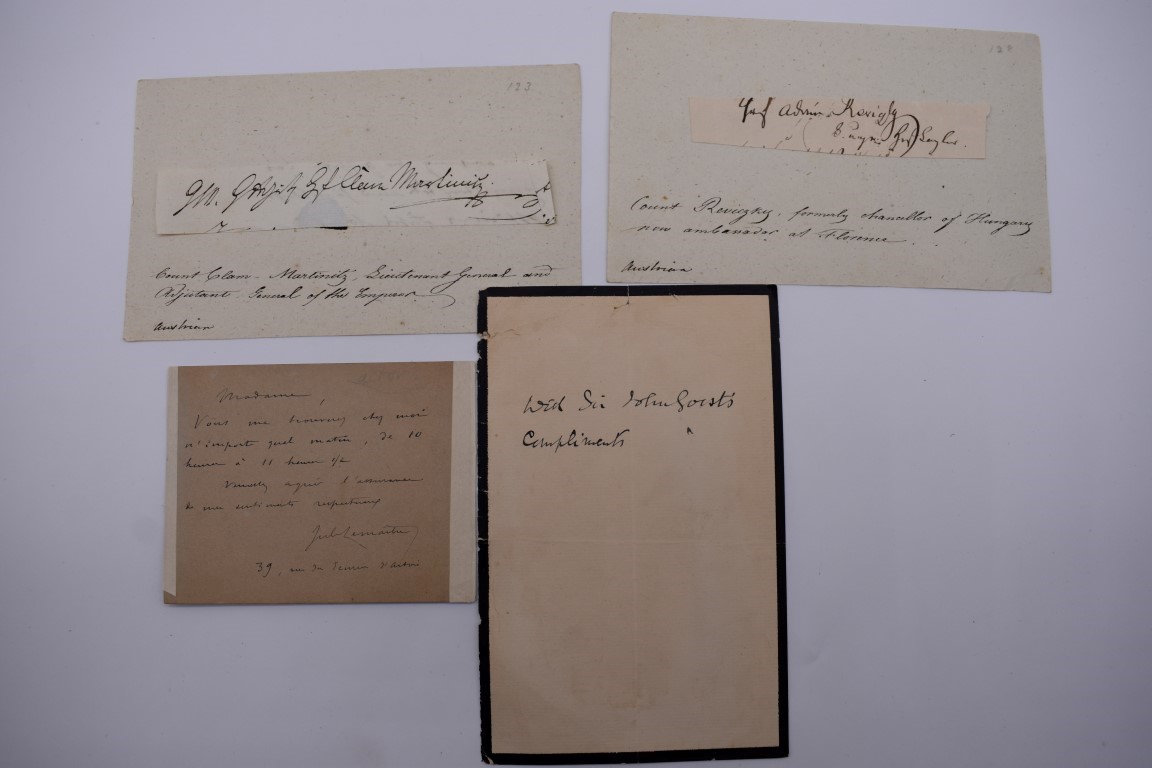 123
Martinitz
Count Clam-Martinitz, Lieutenant General and
Adjutant General of the Emperor
Austrian
128
Adam Reviczky
Count Reviczky formerly chancellor of Hungary
now ambassador at Florence.
Austrian
Madame,
Vous me trouverez chez moi
n'importe quel matin, de 10
heures à 11 heures 1/2
Veuillez agréer l'assurance
de mes sentiments respectueux
Jules Lemaitre
39, rue des Ecuries d'Artois
With Sir John Gorst's
Compliments